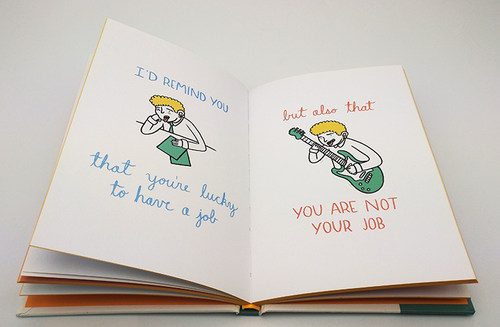 I'D REMIND YOU
that you're lucky
to have a job
but also that
YOU ARE NOT
YOUR JOB